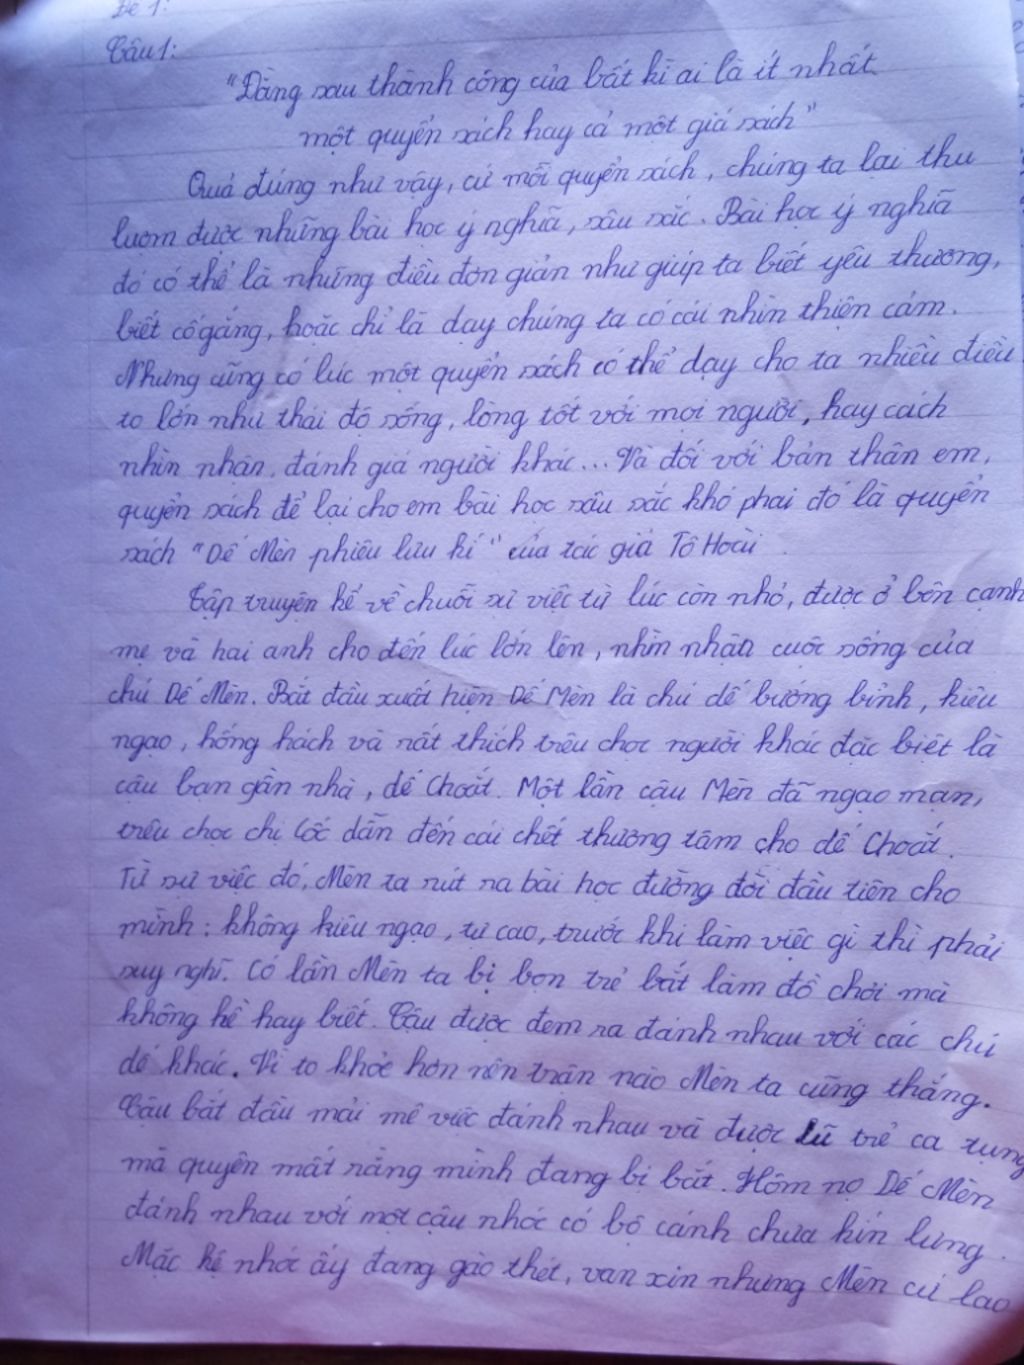 Đề 1:
Câu 1:
"Đằng sau thành công của bất kì ai là ít nhất
một quyển sách hay cả một giá sách"
Quả đúng như vậy, cứ mỗi quyển sách, chúng ta lại thu
lượm được những bài học ý nghĩa, sâu sắc. Bài học ý nghĩa
đó có thể là những điều đơn giản như giúp ta biết yêu thương,
biết cố gắng, hoặc chỉ là dạy chúng ta có cái nhìn thiện cảm.
Nhưng cũng có lúc một quyển sách có thể dạy cho ta nhiều điều
to lớn như thái độ sống, lòng tốt với mọi người, hay cách
nhìn nhận, đánh giá người khác... Và đối với bản thân em,
quyển sách để lại cho em bài học sâu sắc khó phai đó là quyển
sách "Dế Mèn phiêu lưu kí" của tác giả Tô Hoài.
Tập truyện kể về chuỗi sự việc từ lúc còn nhỏ, được ở bên cạnh
mẹ và hai anh cho đến lúc lớn lên, nhìn nhận cuộc sống của
chú Dế Mèn. Bắt đầu xuất hiện Dế Mèn là chú dế bướng bỉnh, kiêu
ngạo, hống hách và rất thích trêu chọc người khác đặc biệt là
cậu bạn gần nhà, dế Choắt. Một lần cậu Mèn đã ngạo mạn,
trêu chọc chị Cốc dẫn đến cái chết thương tâm cho dế Choắt.
Từ sự việc đó, Mèn ta rút ra bài học đường đời đầu tiên cho
mình: không kiêu ngạo, tự cao, trước khi làm việc gì thì phải
suy nghĩ. Có lần Mèn ta bị bọn trẻ bắt làm đồ chơi mà
không hề hay biết. Cậu được đem ra đánh nhau với các chú
dế khác. Vì to khỏe hơn nên trận nào Mèn ta cũng thắng.
Cậu bắt đầu mải mê việc đánh nhau và được lũ trẻ ca tụng
mà quyên mất rằng mình đang bị bắt. Hôm nọ Dế Mèn
đánh nhau với một cậu nhóc có bộ cánh chưa kín lưng.
Mặc kệ nhóc ấy đang gào thét, van xin nhưng Mèn cứ lao